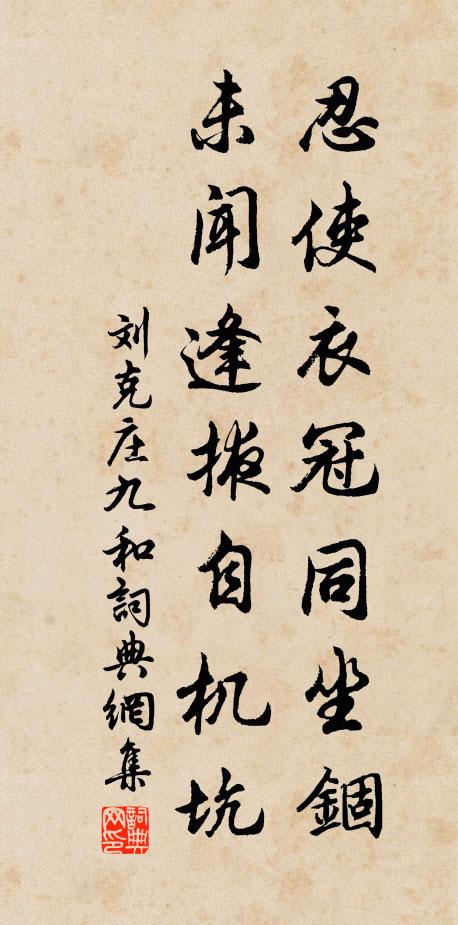 忍使衣冠同坐錮
未闻逢掖自机坑
刘克庄九和詞典網集
詞典网印